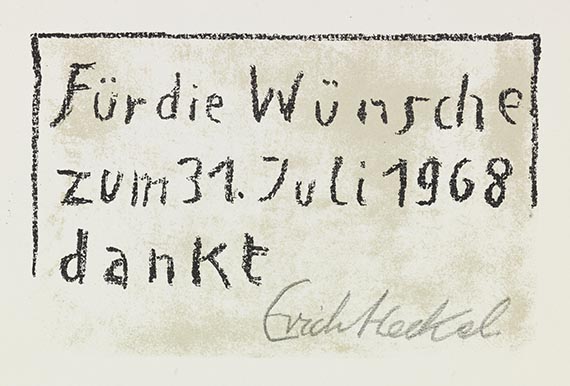 Für die Wünsche
zum 31. Juli 1968
dankt
Erich Heckel